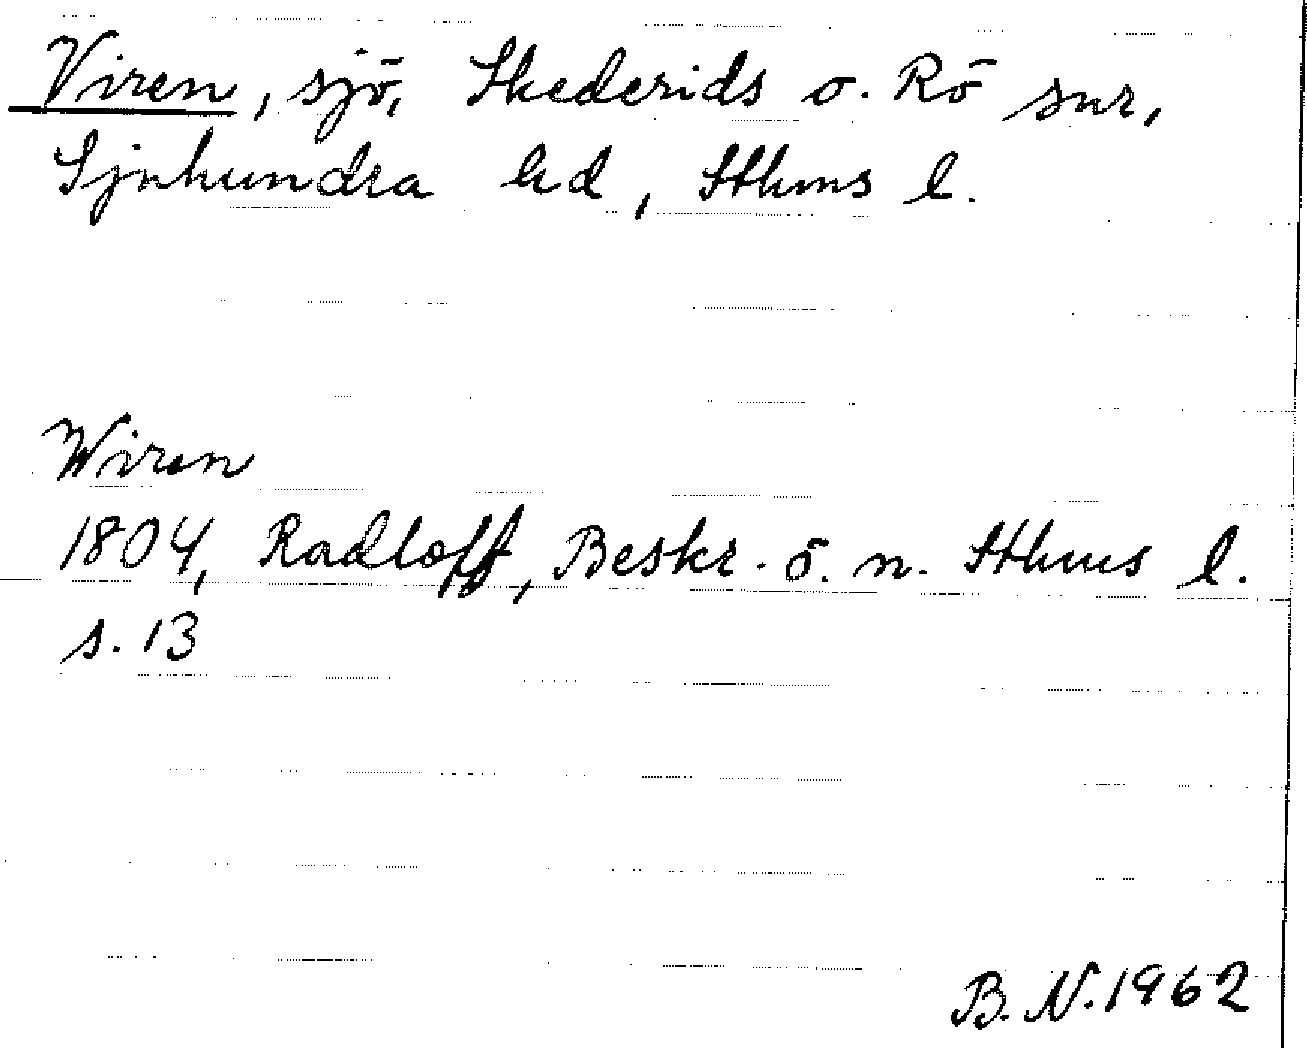 Viren, sjö, Skederids o. Rö snr,
Sjuhundra hd, Sthms l.
Wiren
1804, Radloff, Beskr. ö. n. Sthms l.
s. 13
B. N. 1962